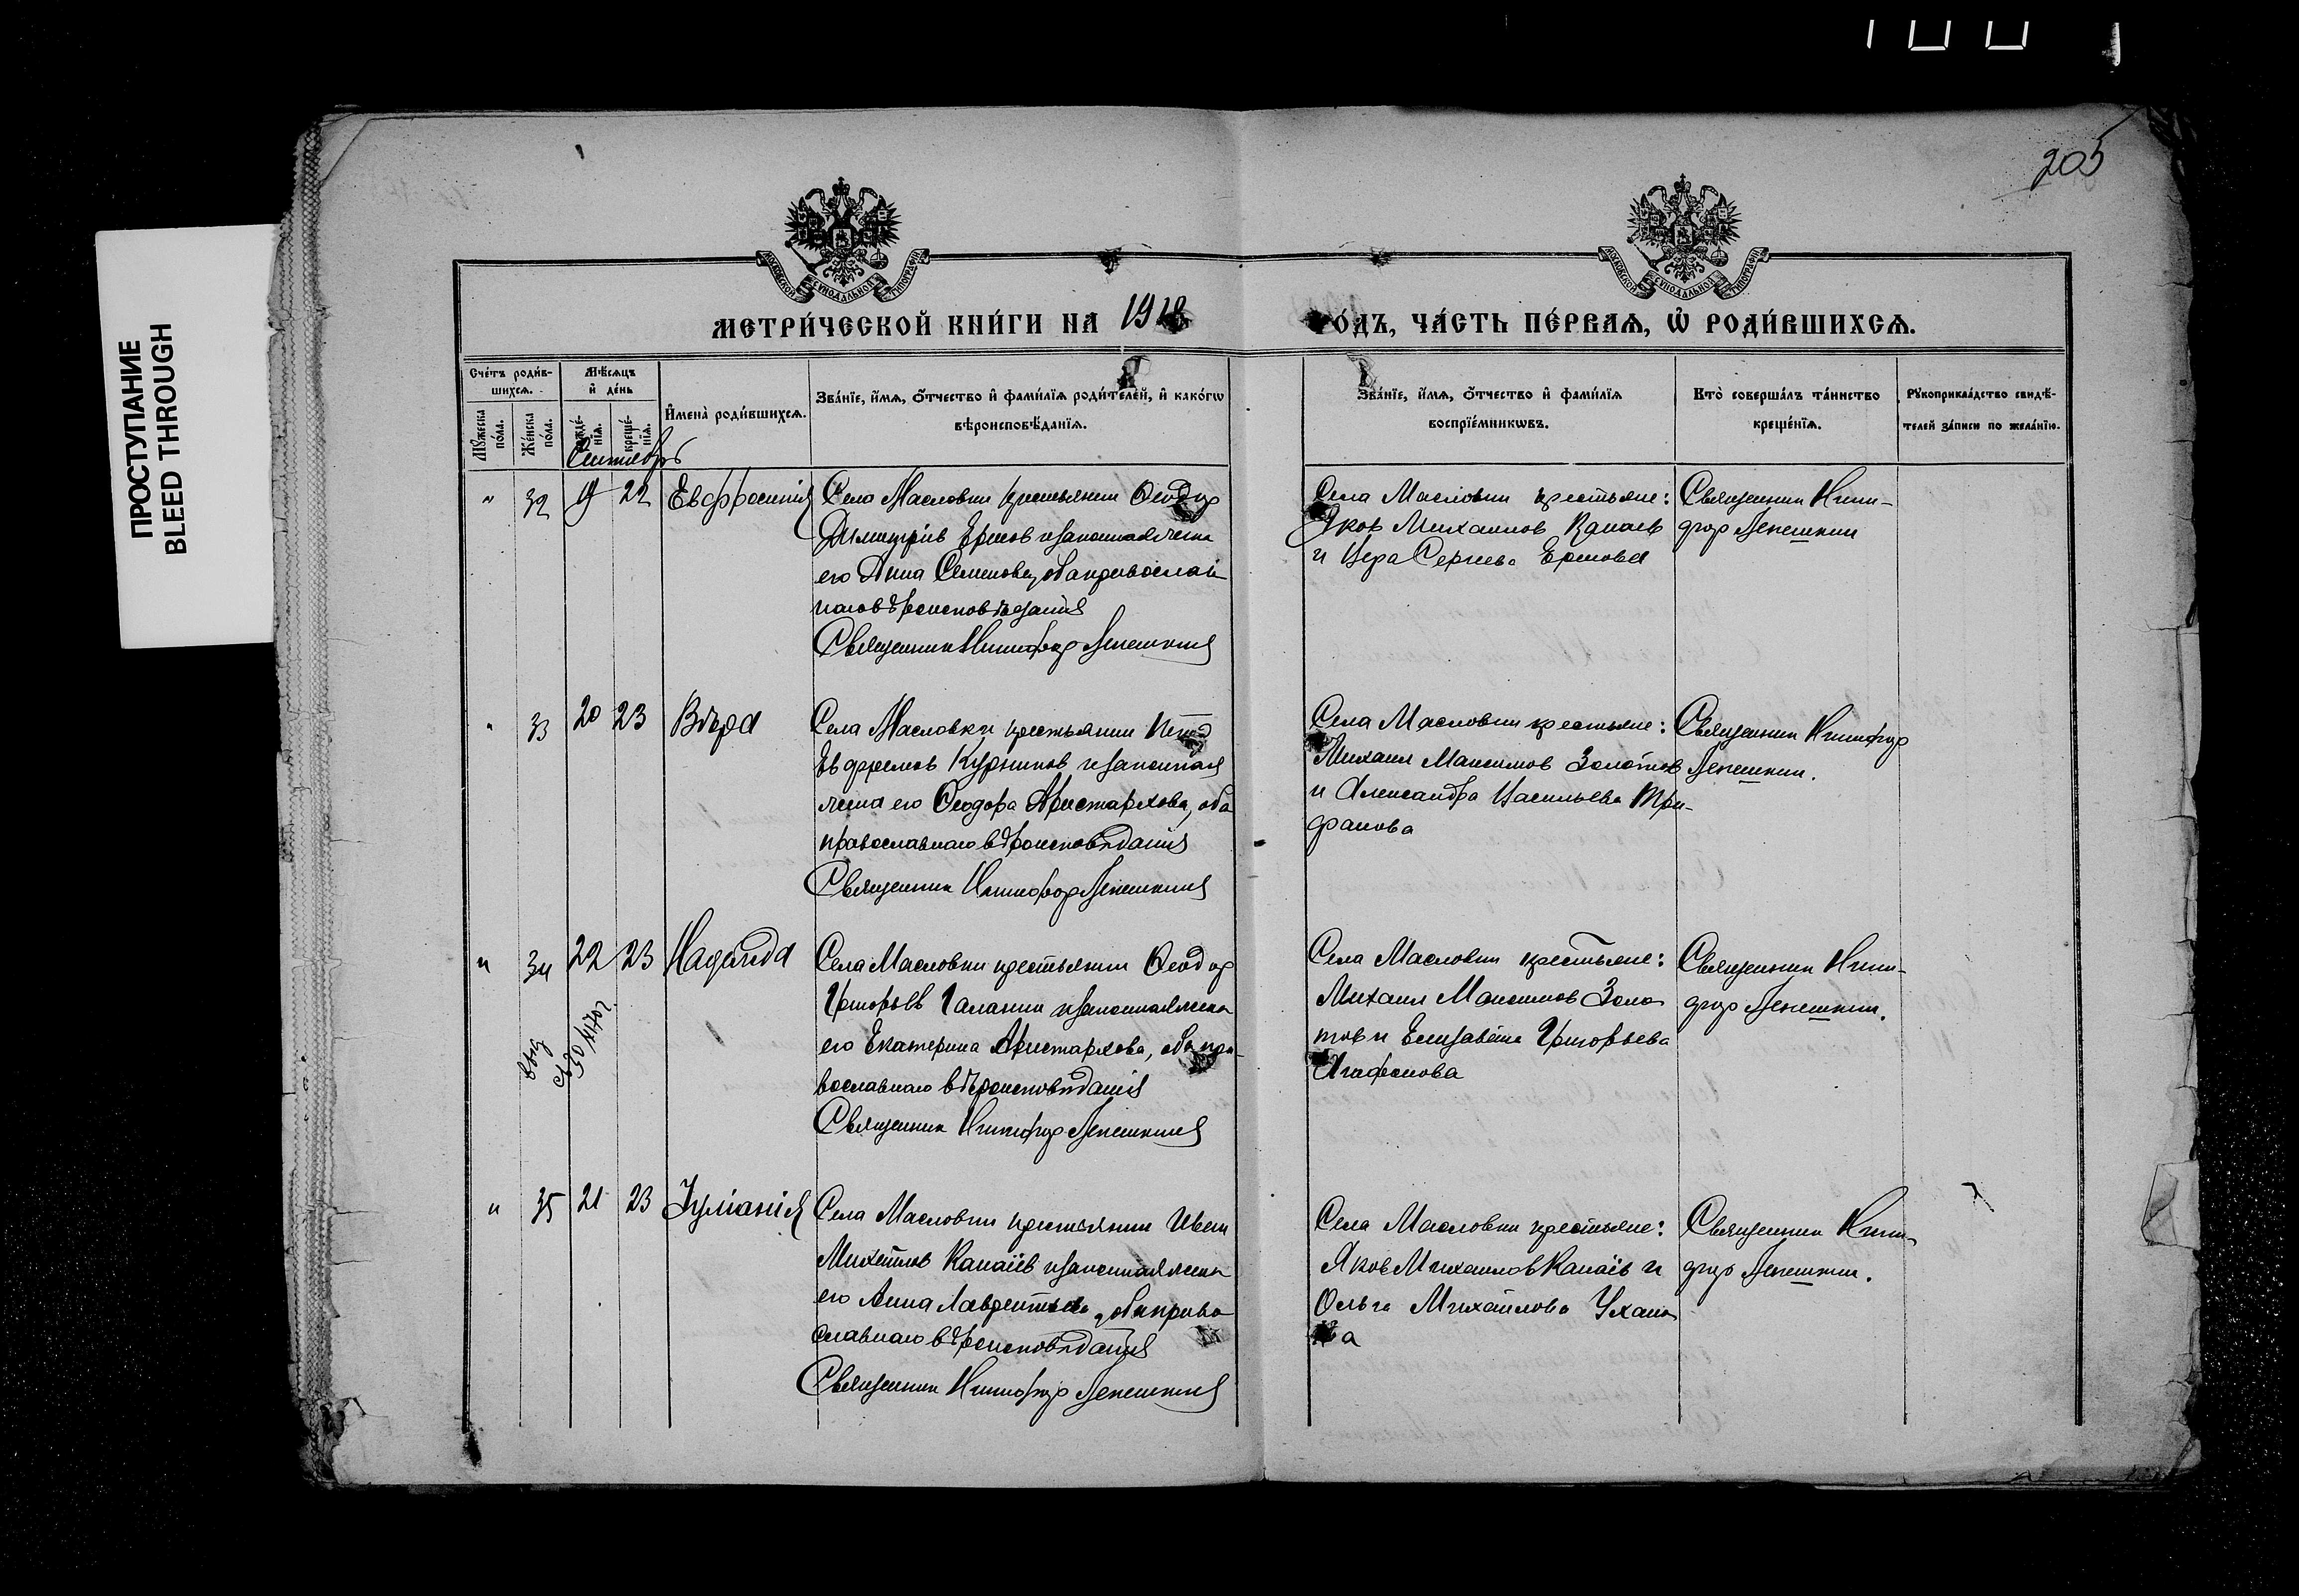 205
ПРОСТУПАНИЕ
BLEED THROUGH
МОСКОВСКОЙ СУНОДАЛЬНОЙ ТИПОГРАФІИ
МОСКОВСКОЙ СУНОДАЛЬНОЙ ТИПОГРАФІИ
МЕТРИ́ЧЕСКОЙ КНИ́ГИ НА 1918
О́ДЪ, ЧА́СТЬ ПЕ́РВАѦ, Ѡ҆ РОДИ́ВШИХСѦ.
Сче́тъ роди́в-
шихсѧ.
Мѣ́сѧцъ
и҆ де́нь
Мꙋ́жеска по́ла.
Же́нска по́ла.
рожде́-
нїѧ.
креще́-
нїѧ.
И҆мена̀ роди́вшихсѧ.
Зва́нїе, и҆́мѧ, ѻ҆́тчество и҆ фами́лїѧ роди́телей, и҆ како́гѡ
вѣроисповѣ́данїѧ.
Зва́нїе, и҆́мѧ, ѻ҆́тчество и҆ фами́лїѧ
воспрїе́мникѡвъ.
Кто̀ соверша́лъ та́инство
креще́нїѧ.
Рꙋкоприкла́дство свидѣ́-
телей за́писи по жела́нїю.
Сентябрь
" 32 9 22 Евфросинія
Села Масловки крестьянин Феодор
Димитріев Ершов и законная жена
его Анна Семенова, оба православ-
наго вѣроисповѣданія
Священник Никифор Лепешкин
Села Масловки крестьяне:
Яков Михаилов Канаев
и Вера Сергиева Ершова
Священник Ники-
фор Лепешкин
" 33 20 23 Вѣра
Села Масловки крестьянин
Евфремов Курников и законная
жена его Феодора Аристархова, оба
православнаго вѣроисповѣданія
Священник Никифор Лепешкин
Села Масловки крестьяне:
Михаил Максимов Золотов
и Александра Васильева Три-
фанова
Священник Никифор
Лепешкин.
" 34 22 23 Надежда
Села Масловки крестьянин Феодор
Григорьев Галанин и законная жена
его Екатерина Аристархова, оба пра-
вославнаго вѣроисповѣданія
Священник Никифор Лепешкин
Села Масловки крестьяне:
Михаил Максимов Золо
тов и Елизавета Григорьева
Агафонова
Священник Ники-
фор Лепешкин.
" 35 21 23 Іуліанія
Села Масловки крестьянин Иван
Михаилов Канаев и законная жена
его Анна Лаврентьева, оба право
славнаго вѣроисповѣданія
Священник Никифор Лепешкин
Села Масловки крестьяне:
Яков Михаилов Канаев и
Ольга Михаилова Ухано
ва
Священник Ники-
фор Лепешкин.